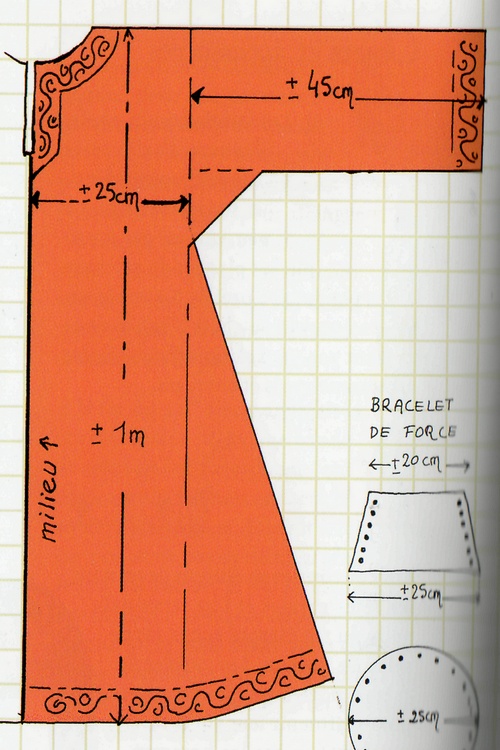 ± 45cm
± 25cm
± 1m
milieu
BRACELET
DE FORCE
± 20cm
± 25cm
± 25cm